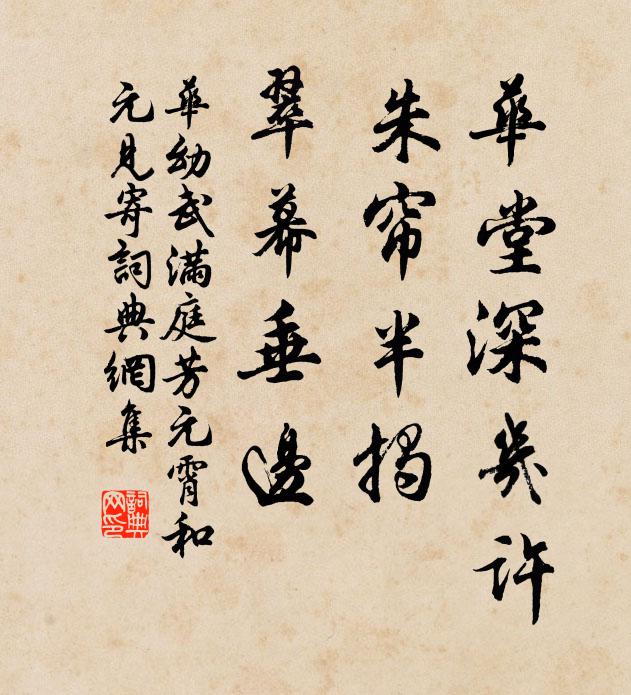 華堂深幾許
朱帘半揭
翠幕垂邊
華幼武滿庭芳元宵和
元見寄詞典網集
詞典
网印